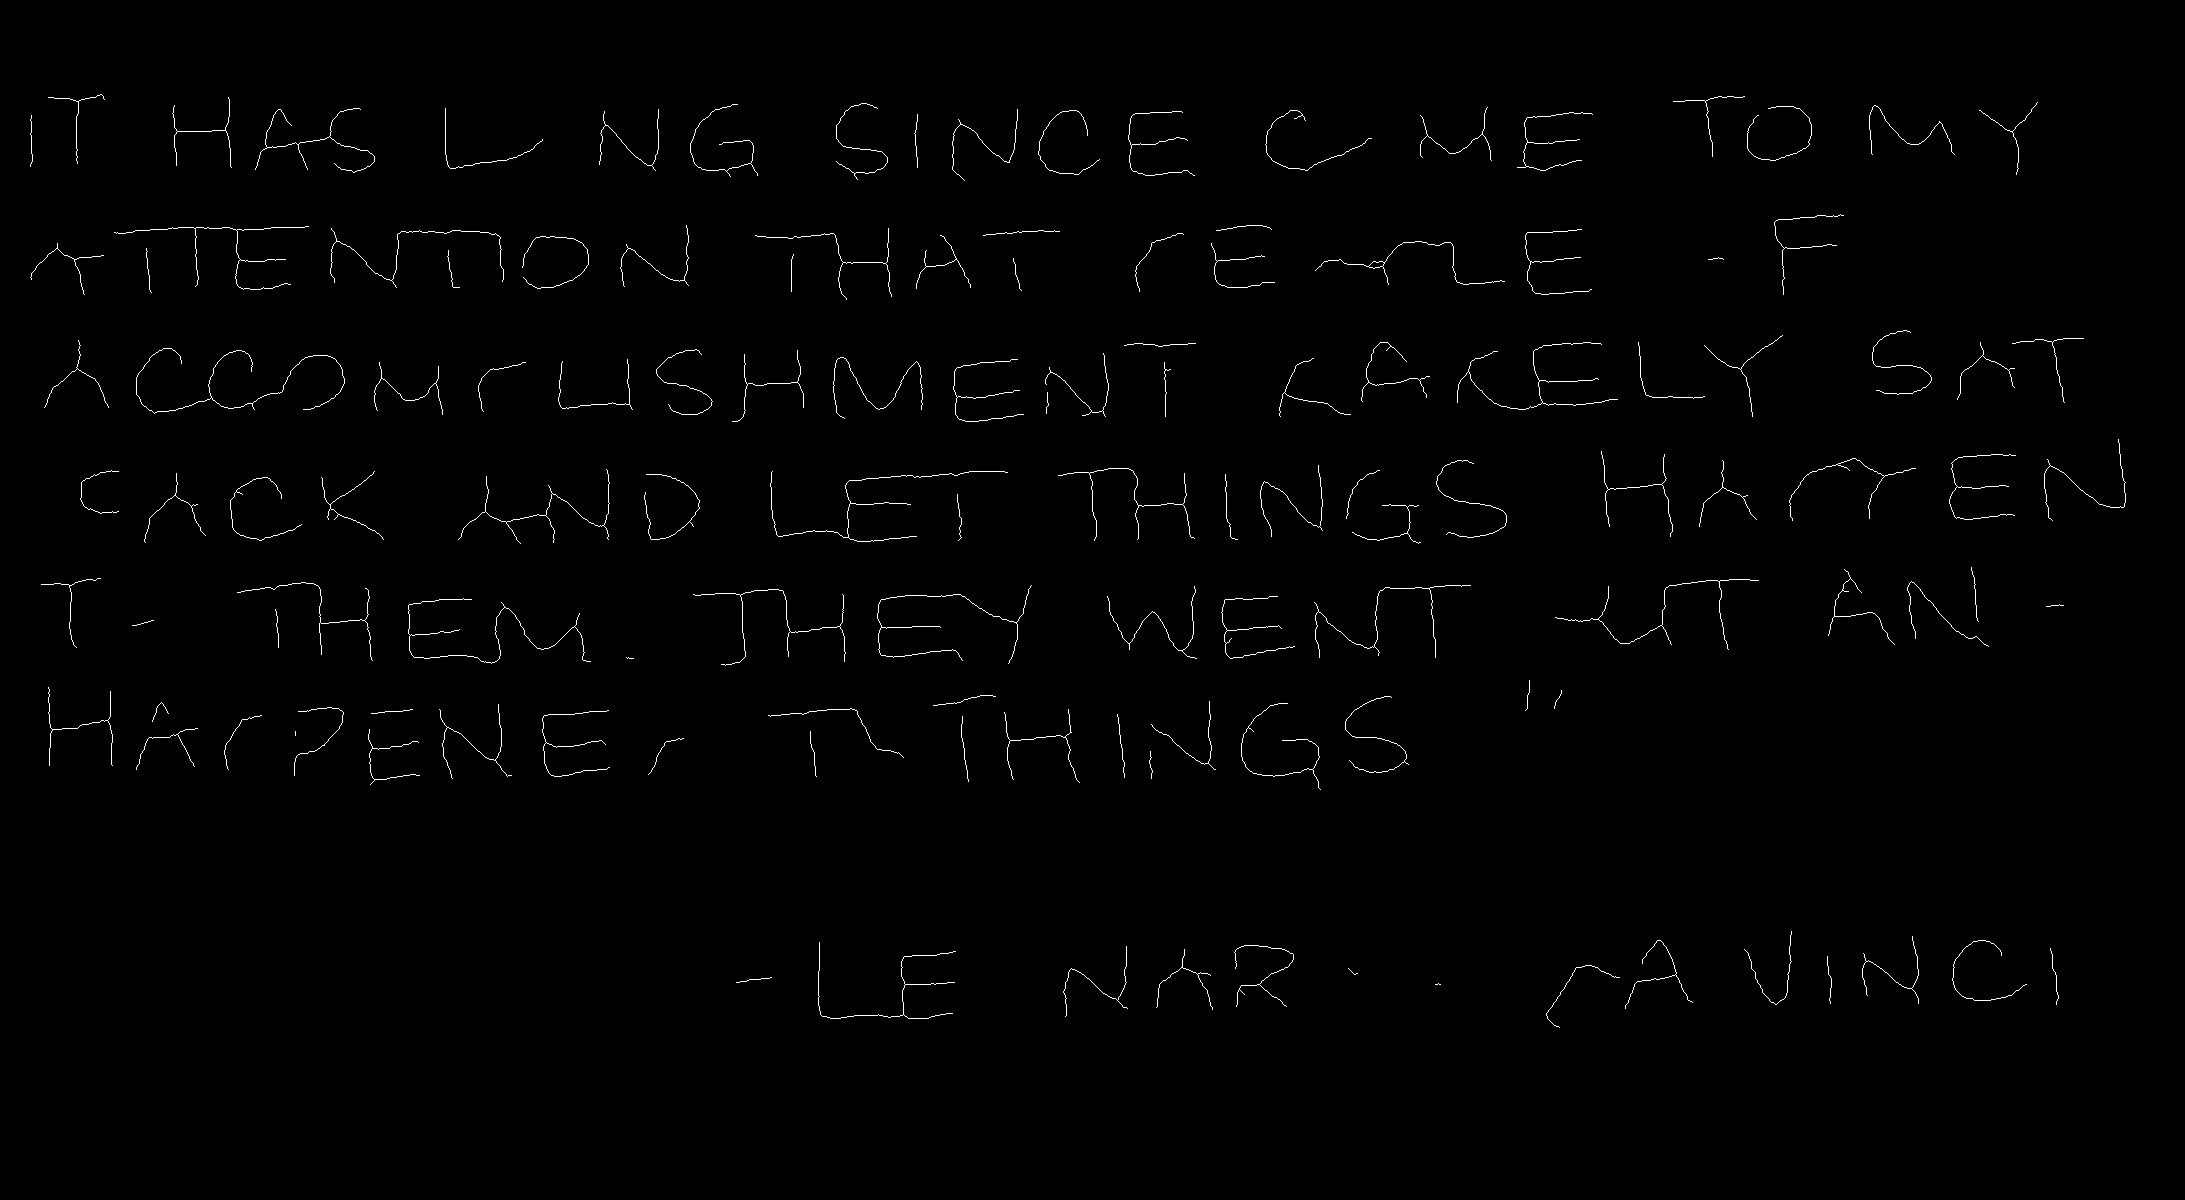 IT HAS LONG SINCE COME TO MY
ATTENTION THAT PEOPLE OF
ACCOMPLISHMENT RARELY SAT
BACK AND LET THINGS HAPPEN
TO THEM. THEY WENT OUT AND
HAPPENED TO THINGS"
-LEONARDO DA VINCI